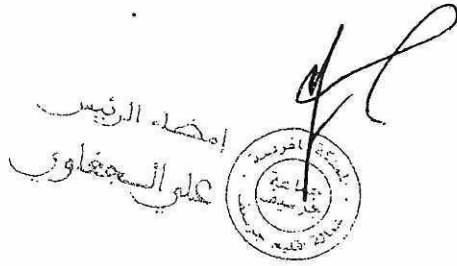 إمضاء الرئيس
علي الجغاوي
المملكة المغربية
جماعة
جرسيف
عمالة اقليم جرسيف